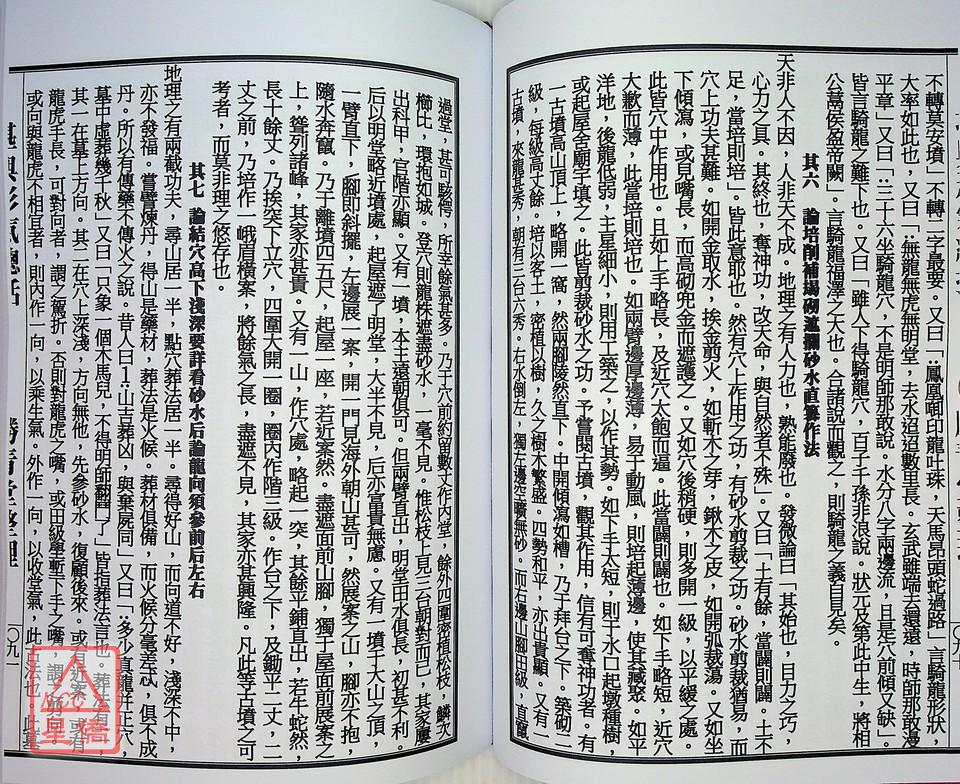 不轉莫安墳」不轉二字最要。又曰「:鳳凰啣印龍叶珠,天馬昂頭蛇過路」言騎龍形狀,
大率如此也,又曰「:無龍無虎無明堂,去水迢迢數里長。玄武雖端去還遠,時師那敢漫
平章」又曰「:三十六坐騎龍穴,不是明師那敢說。水分八字兩邊流,且是穴前傾又缺」。
皆言騎龍之難下也。又曰「雖人下得騎龍穴,百子千孫非浪說。狀元及第此中生,將相
公蒿侯盈帝闕」。言騎龍福澤之大也。合諸說而觀之,則騎龍之義自見矣。
其六 論培削補塲砌遮攔砂水直篡作法
天非人不因,人非天不成。地理之有人力也,孰能廢也。發微論曰「其始也,目力之巧,
心力之具。其終也,奪神功,改天命,與自然者不殊」又曰「土有餘,當闢則闢。土不
足,當培則培」。皆此意耶也。然有穴上作用之功,有砂水剪裁之功。砂水剪裁猶易,而
穴上功夫甚難。如開金取水,挨金剪火,如斬木之芽,鍬木之皮,如開弧裁湯。又如坐
下傾瀉,或見嘴長,而高砌兜金而遮護之。又如穴後稍硬,則多開一級,以平緩之處。
此皆穴中作用也。且如上手略長,及近穴太飽而逼。此當闢則闢也。如下手略短,近穴
大歉而薄,此當培則培也。如兩臂邊厚邊薄,易于動風,則培起薄邊,使其藏聚。如平
洋地,後龍低弱,主星細小,則用工築之,以作其勢。如下手太短,則于水口起墩種樹,
或起屋舍廟宇填之。此皆剪裁砂水之功。予嘗閱古墳,觀其作用,信有可奪神功者。有
一古墳高山頂上,略開一窩,然兩腳陵然直下。中開傾瀉如槽,乃于拜台之下。築砌二
級,每級高丈餘。培以客土,密植以樹,久之樹木繁盛。四勢和平,亦出貴顯。又有二
古墳,來龍甚秀,朝有三台六秀。右水倒左,獨左邊空曠無砂。而右邊山腳田級,直竄
過堂,甚可駭愕,所幸餘氣甚多。乃于穴前約留數丈作內堂,餘外四圍密植松枝,鱗次
櫛比,環抱如城。登穴則龍株遮盡砂水,一毫不見。惟松枝上見三台朝對而已,其家屢
出科甲,官階亦顯。又有一墳,本主遠朝俱可。但兩臂直出,明堂田水俱長,初甚不利。
后以明堂略近墳處,起屋遮了明堂,大半不見,后亦富貴無慮。又有一墳于大山之頂,
一臂直下,腳即斜擺,左邊展一案,開一門見海外朝山甚可,然展案之山,腳亦不抱,
隨水奔竄。乃于離墳四五尺,起屋一座,若近案然。盡遮面前山腳,獨于屋面前展案之
上,聳列諸峰,其家亦甚貴。又有一山,作穴處,略起一突,其餘平鋪直出,若牛蛇然,
長十餘丈。乃挨突下立穴,四圍大開一圈,圈內作階三級。作台之下,及鋤平二丈,二
丈之前,乃培作一峨眉橫案,將餘氣之長,盡遮不見,其家亦甚興隆。凡此等古墳之可
考者,而莫非理之悠存也。
其七 論結穴高下淺深要詳看砂水后論龍向須參前后左右
地理之有兩截功夫,尋山居一半,點穴葬法居一半。尋得好山,而向道不好,淺深不中,
亦不發福。嘗譬煉丹,得山是藥材,葬法是火候。葬材俱備,而火候分毫差忒,俱不成
丹。所以有傳藥不傳火之說。昔人曰1:山吉葬凶,與棄屍同」又曰「:多少真龍幷正穴,
墓中虛葬幾千秋」又曰「:只象一個木馬兒,不得明師翻圖了」皆指葬法言也。葬法有二,
其一在墓上方向。其二在穴上深淺,方向無他,先參砂水,復顧後來。或有近案,或有
龍虎手長,可對向者,謂之駕折。否則對龍虎之嘴,或田級學塹下手之嘴,謂之
或向與龍虎不相宜者,則內作一向,以乘生氣。外作一向,以收堂氣,此古法也。此墓
一〇九一
星橋